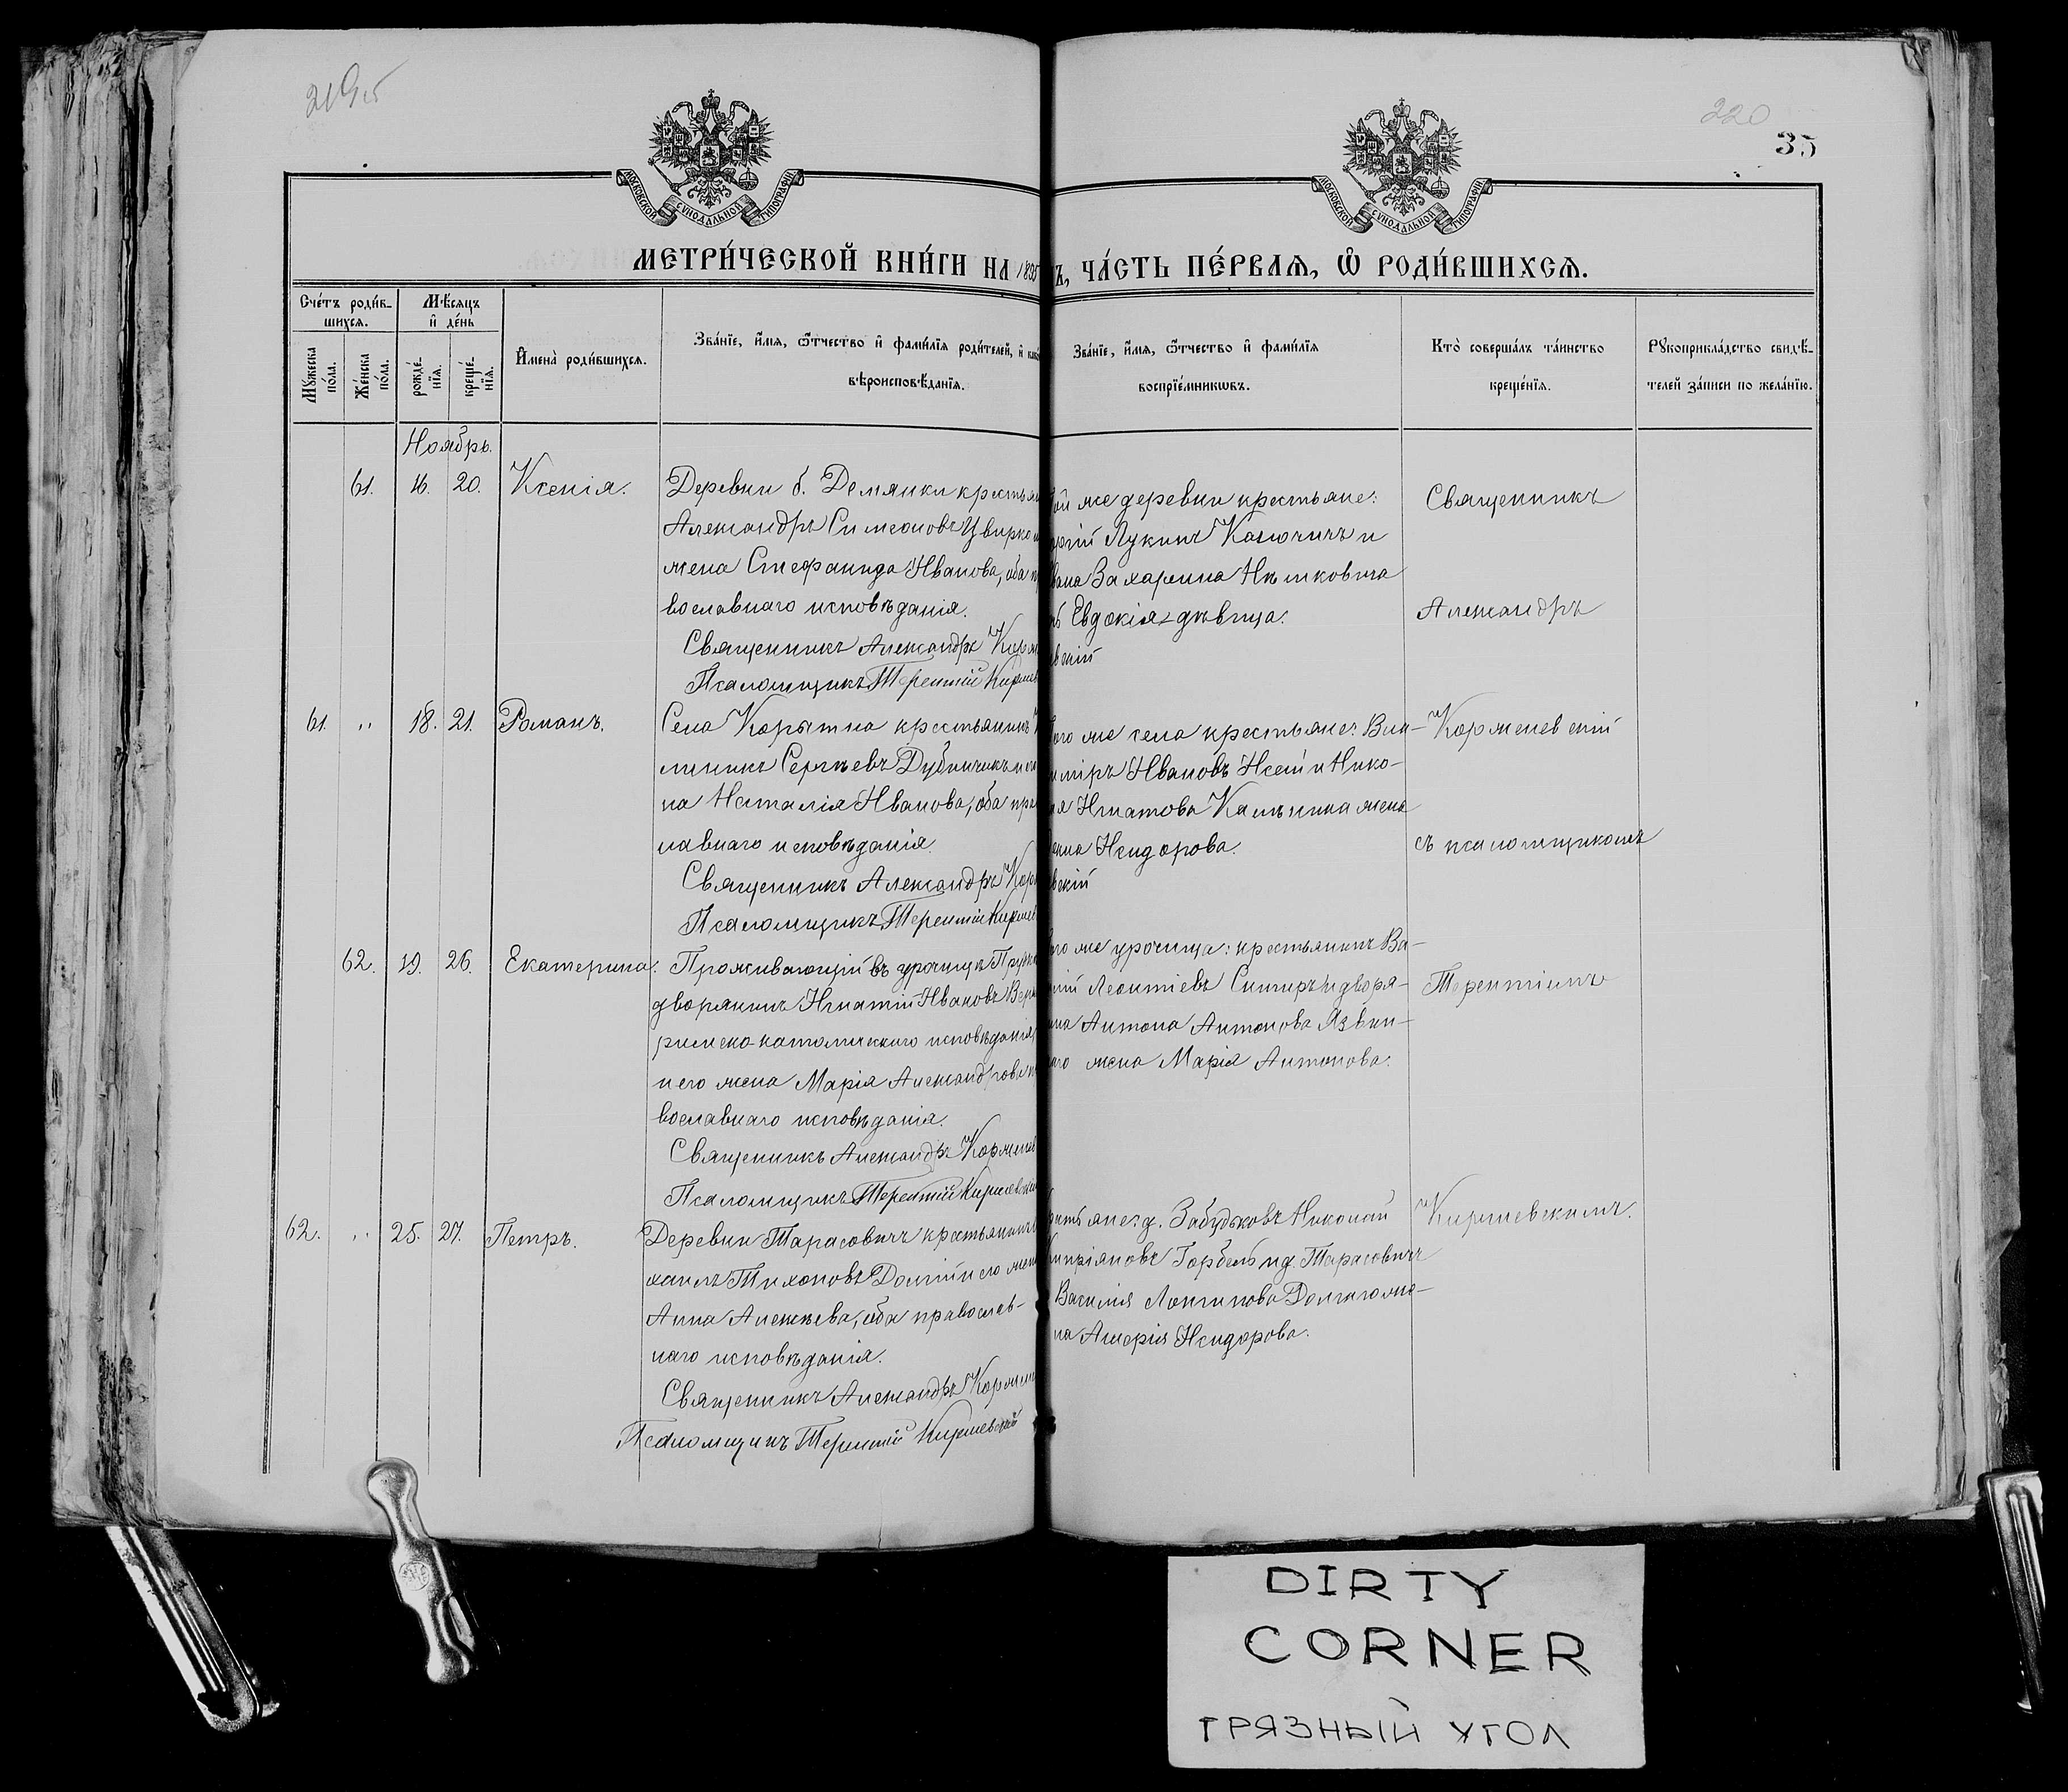 220
35
МОСКОВСКОЙ СУНОДАЛЬНОЙ ТИПОГРАФІИ
МОСКОВСКОЙ СУНОДАЛЬНОЙ ТИПОГРАФІИ
МЕТРИ́ЧЕСКОЙ КНИ́ГИ НА 1895
Ъ, ЧА́СТЬ ПЕ́РВАѦ, Ѽ РОДИ́ВШИХСѦ.
Сче́тъ роди́в-
шихсѧ.
Мꙋжеска по́ла.
Же́нска по́ла.
Мѣ́сѧцъ
и҆ де́нь
рожде́-
нїѧ.
креще́-
нїѧ.
И҆мена̀ роди́вшихсѧ.
Зва́нїе, и҆́мѧ, ѻ҆́тчество и҆ фами́лїѧ роди́телей, и҆
вѣроисповѣ́данїѧ.
Зва́нїе, и҆́мѧ, ѻ҆́тчество и҆ фами́лїѧ
воспрїе́мникѡвъ.
Кто̀ соверша́лъ та́инство
креще́нїѧ.
Рꙋкоприкла́дство свидѣ́-
телей за́писи по жела́нїю.
Ноябрь.
61. 16. 20. Ксенія.
Деревни б. Демянки крестьян
Александръ Симеоновъ Цвирко и
жена Стефанида Иванова, оба п
вославнаго исповѣданія.
Священникъ Александръ Корж
Псаломщикъ Терентій Киршев
ой же деревни крестьяне:
Лукинъ Калючичъ и
Захарина Ицковича
Евдокія дѣвица.
вскій
Священникъ
Александръ
Корженевскій
съ псаломщикомъ
Терентіемъ
Киршевскимъ.
61. " 18. 21. Романъ.
Села Корытна крестьянинъ
Сергѣевъ Дубинчикъ и его
на Наталія Иванова, оба прав
лавнаго исповѣданія.
Священникъ Александръ Кор
Псаломщикъ Терентій Киршев
ого же села крестьяне: Вла-
иміръ Ивановъ и Нико-
я Игнатова жена
Исидорова.
вскій
62. 19. 26. Екатерина.
Проживающій въ урочищѣ
дворянинъ Игнатій Ивановъ
римско-католическаго исповѣданія,
и его жена Марія Александрова п
вославнаго исповѣданія.
Священникъ Александръ Корженев
Псаломщикъ Терентій Киршевскій
ого же урочища: крестьянинъ Ва-
лій Леонтіевъ и дворя-
нина Антона Антонова Язвин-
аго жена Марія Антонова.
62. " 25. 27. Петръ.
Деревни Тарасовичъ крестьянинъ
хаилъ Тихоновъ Долгій и его жена
Анна Алексѣева, оба православ-
наго исповѣданія.
Священникъ Александръ Коржен
Псаломщикъ Терентій Киршевскій
стьяне: д. Забудьковъ Николай
Кипріяновъ Горбель и д. Тарасовичъ
Василія Лонгинова Долгаго же-
на Исидорова.
DIRTY
CORNER
ГРЯЗНЫЙ УГОЛ